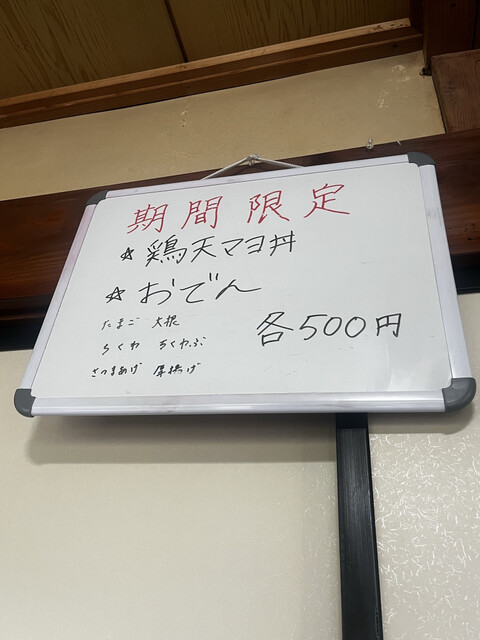 期間限定
☆鶏天マヨ丼
☆おでん
たまご 大根
ちくわ ちくわぶ
さつまあげ 厚揚げ
各500円